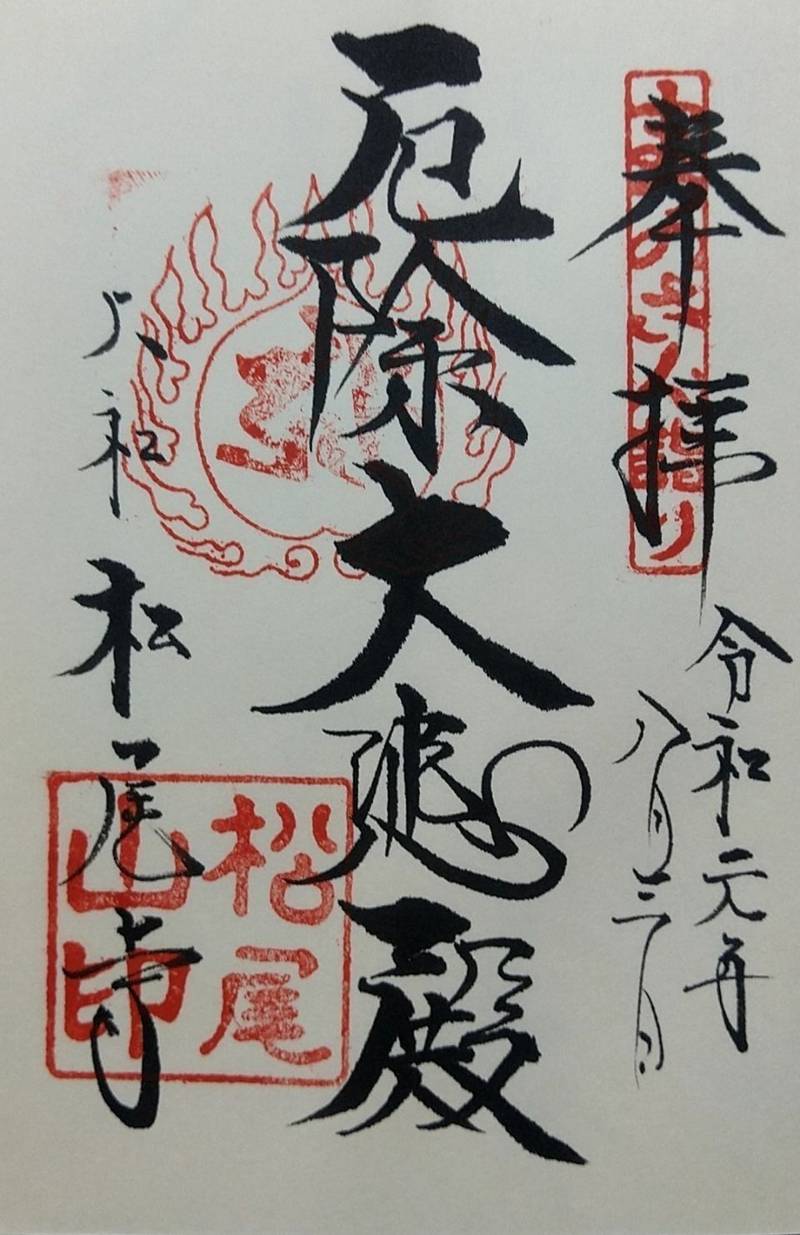 奉拝
令和元年
八月三日
厄除大悲殿
大和 松尾寺
松尾
山印